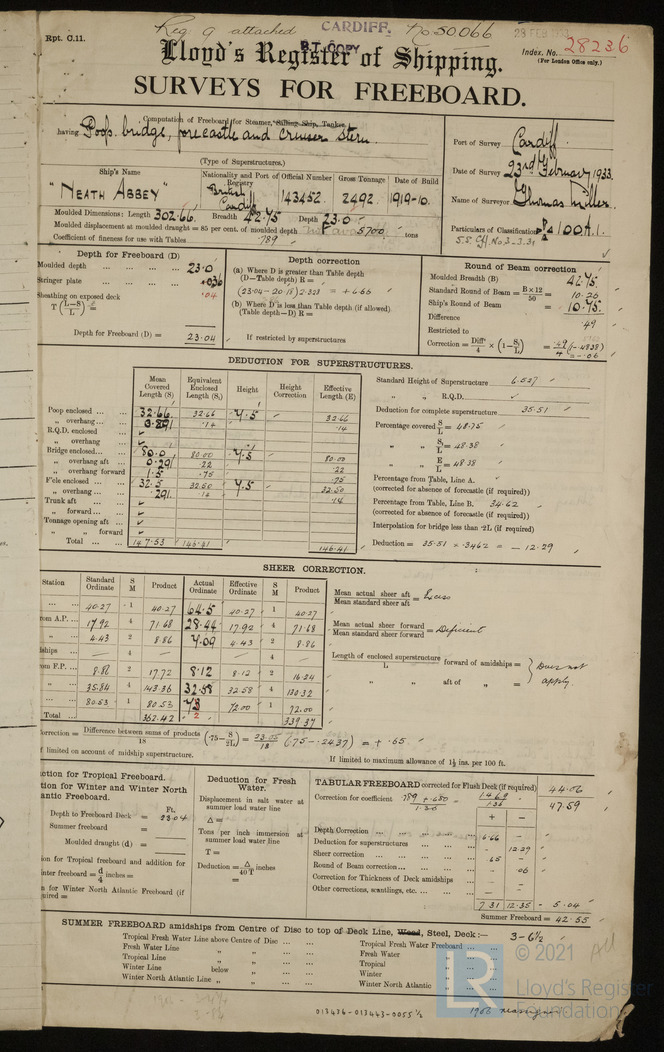 Reg 9 attached CARDIFF. No 50066 23 FEB
Rpt. C.11. B.T. COPY Index. No. 28236
(For London Office only.)
Lloyd's Register of Shipping.
SURVEYS FOR FREEBOARD.
Computation of Freeboard for Steamer, Sailing Ship, Tanker
having Poop, bridge, forecastle and cruiser stern.
(Type of Superstructures.)
Port of Survey Cardiff.
Date of Survey 23rd February 1933.
Name of Surveyor Thomas Miller.
Particulars of Classification 100 A.1.
Ship's Name Nationality and Port of Registry Official Number Gross Tonnage Date of Build
"NEATH ABBEY" British Cardiff 143452 2492 1919-10.
Moulded Dimensions: Length 302.66 Breadth 42.75 Depth 23.0
Moulded displacement at moulded draught = 85 per cent. of moulded depth 5700 tons
Coefficient of fineness for use with Tables .789
Depth for Freeboard (D)
Moulded depth 23.0
Stringer plate +.036
Sheathing on exposed deck .04
T (L-S/L) =
Depth for Freeboard (D) = 23.04
Depth correction
(a) Where D is greater than Table depth
(D-Table depth) R =
(23.04 - 20.18) 2.328 = + 6.66
(b) Where D is less than Table depth (if allowed)
(Table depth-D) R =
If restricted by superstructures
Round of Beam correction
Moulded Breadth (B) 42.75
Standard Round of Beam = B×12/50 = 10.26
Ship's Round of Beam = 10.75
Difference .49
Restricted to
Correction = Diff/4 × (1-S/L) = .49/4 (1-.4838) = -.06
DEDUCTION FOR SUPERSTRUCTURES.
Mean Covered Length (S) Equivalent Enclosed Length (S₁) Height Height Correction Effective Length (E)
Poop enclosed ... 32.66 32.66 7.5 32.66
„ overhang ... .14 .14
R.Q.D. enclosed
„ overhang
Bridge enclosed... 80.0 80.00 7.5 80.00
„ overhang aft 0.291 .22 .22
„ overhang forward 1.5 .75 .75
F'cle enclosed... 32.5 32.50 7.5 32.50
„ overhang ... .291 .14 .14
Trunk aft ...
„ forward ...
Tonnage opening aft ...
„ „ forward
Total ... 147.53 146.41 146.41
Standard Height of Superstructure 6.527
„ „ R.Q.D.
Deduction for complete superstructure 35.51
Percentage covered S/L = 48.75
„ „ S₁/L = 48.38
„ „ E/L = 48.38
Percentage from Table, Line A.
(corrected for absence of forecastle (if required))
Percentage from Table, Line B. 34.62
(corrected for absence of forecastle (if required))
Interpolation for bridge less than ·2L (if required)
Deduction = 35.51 × .3462 = - 12.29
SHEER CORRECTION.
Station Standard Ordinate S M Product Actual Ordinate Effective Ordinate S M Product
... 40.27 1 40.27 64.5 40.27 1 40.27
from A.P. ... 17.92 4 71.68 28.44 17.92 4 71.68
„ ... 4.43 2 8.86 7.09 4.43 2 8.86
ships ... — 4 — 4
from F.P. ... 8.86 2 17.72 8.12 8.12 2 16.24
„ ... 35.84 4 143.36 32.58 32.58 4 130.32
... 80.53 1 80.53 73 72.00 1 72.00
Total ... 362.42 339.37
Mean actual sheer aft / Mean standard sheer aft = Excess
Mean actual sheer forward / Mean standard sheer forward = Deficient
Length of enclosed superstructure / L forward of amidships =
„ aft of „ = } Does not apply.
Correction = Difference between sums of products / 18 (·75 - S/2L) = 23.05/18 (.75-.2437) = + .65
If limited on account of midship superstructure.
If limited to maximum allowance of 1½ ins. per 100 ft.
ction for Tropical Freeboard.
tion for Winter and Winter North
antic Freeboard.
Ft.
Depth to Freeboard Deck = 23.04
Summer freeboard =
Moulded draught (d) =
ion for Tropical freeboard and addition for
nter freeboard = d/4 inches =
n for Winter North Atlantic Freeboard (if
uired =
Deduction for Fresh Water.
Displacement in salt water at
summer load water line
Δ =
Tons per inch immersion at
summer load water line
T =
Deduction = Δ/40T inches
=
TABULAR FREEBOARD corrected for Flush Deck (if required) 44.06
Correction for coefficient .789 + .680 / 1.36 = 1.469 / 1.36 47.59
+ -
Depth Correction ... 6.66 —
Deduction for superstructures ... 12.29
Sheer correction ... .65
Round of Beam correction... .06
Correction for Thickness of Deck amidships — —
Other corrections, scantlings, etc. ... — —
7.31 12.35 - 5.04
Summer Freeboard = 42.55
SUMMER FREEBOARD amidships from Centre of Disc to top of Deck Line, Wood, Steel, Deck:— 3-6½
Tropical Fresh Water Line above Centre of Disc ...
Fresh Water Line „ „
Tropical Line „ „
Winter Line below „
Winter North Atlantic Line „ „
Tropical Fresh Water Freeboard ...
Fresh Water „
Tropical „
Winter „
Winter North Atlantic „
LR © 2021
Lloyd's Register
Foundation
013436-013443-0055 ½